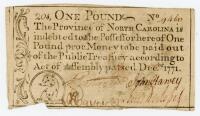 20s. ONE POUND No 9460
The Province of NORTH CAROLINA is
indebted to the Possessor hereof One
Pound proc Money to be paid out
of the Public Treasury according to
Act of Assembly passed Decr. 1771.
John Harvey